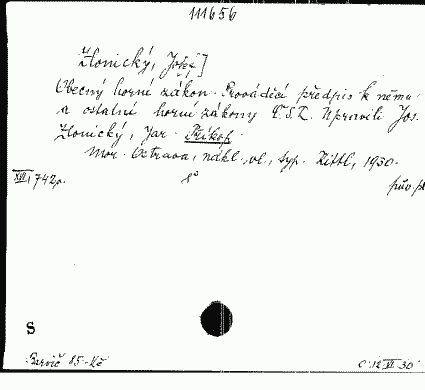 111656
Zlonický, Josef]
Obecný horní zákon. Prováděcí předpis k němu
a ostatní horní zákony Č.S.R. Upravili Jos.
Zlonický, Jar. Příkop.
Mor. Ostrava, nákl. vl., typ. Kittl, 1930.
XVI, 742 p. 8° pův. pl
S
Barvič 85.-Kč C 12 VI 30